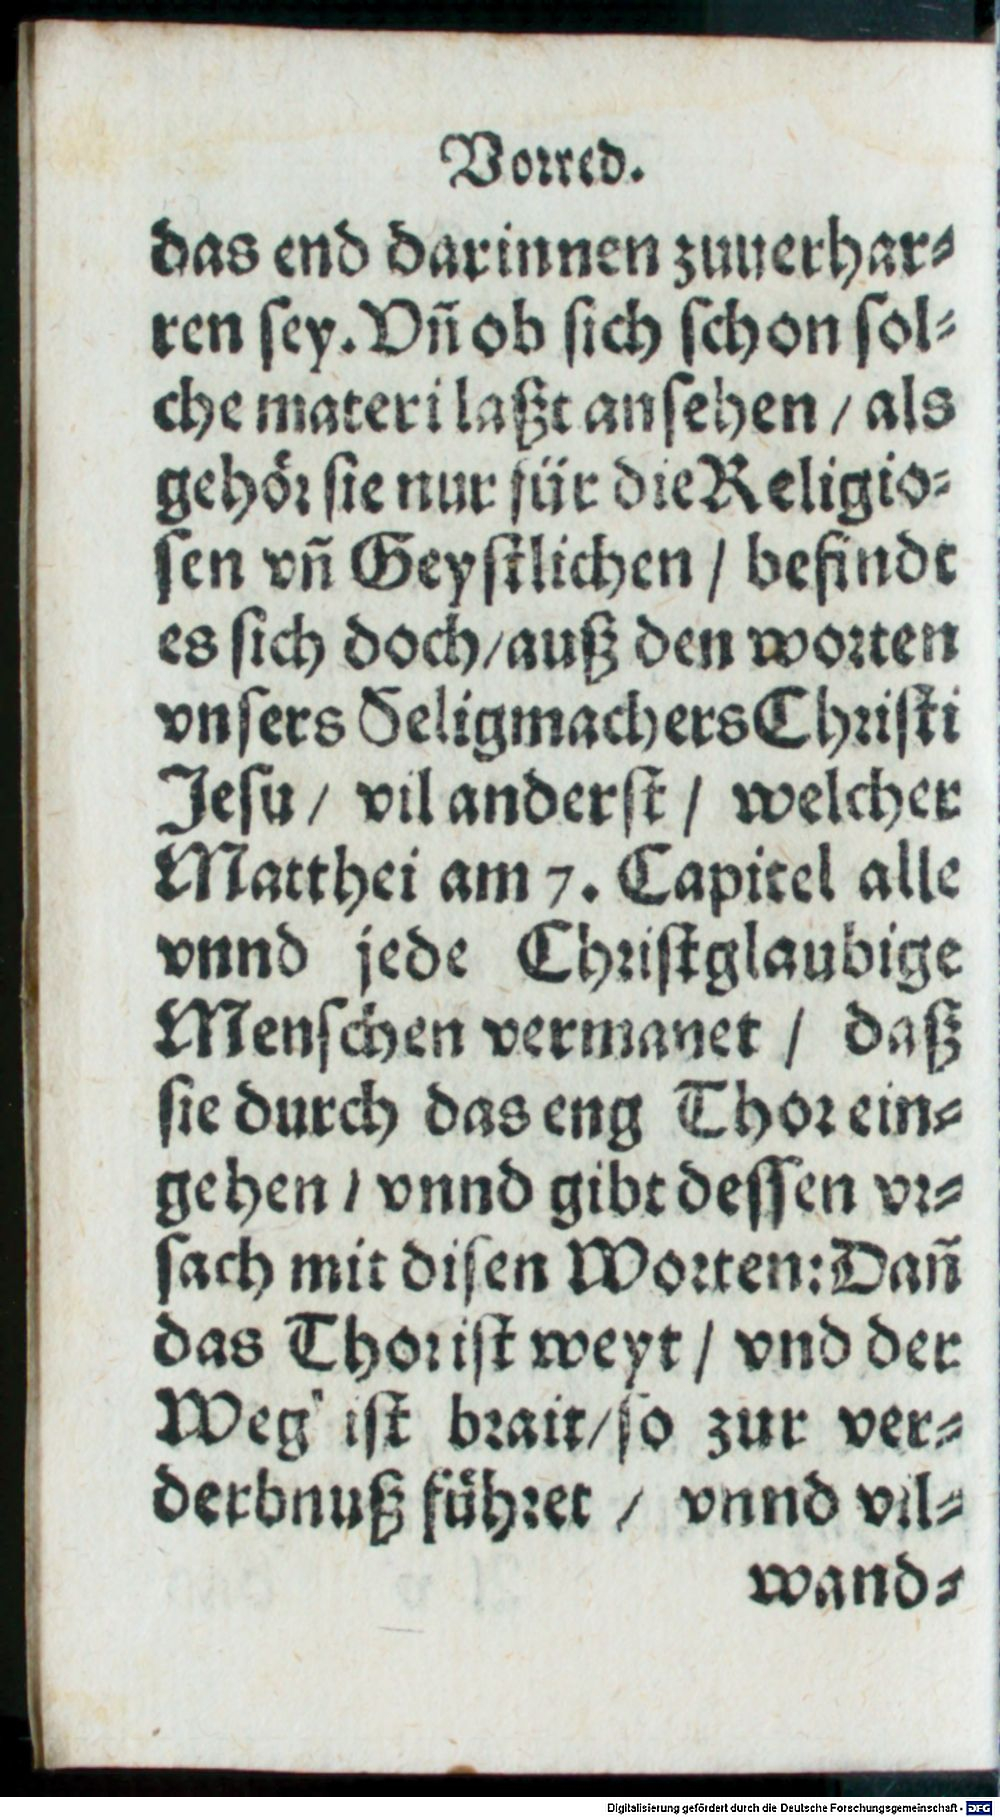 Vorred.
das end darinnen zuuerhar⸗
ren ſey. Vñ ob ſich ſchon ſol⸗
che materi laßt anſehen / als
gehoͤr ſie nur fuͤr die Religio⸗
ſen vñ Geyſtlichen / befindt
es ſich doch / auß den worten
vnſers Seligmachers Chriſti
Jeſu / vil anderſt / welcher
Matthei am 7. Capitel alle
vnnd jede Chriſtglaubige
Menſchen vermanet / daß
ſie durch das eng Thor ein⸗
gehen / vnnd gibt deſſen vr⸗
ſach mit diſen Worten: Dañ
das Thor iſt weyt / vnd der
Weg iſt brait / ſo zur ver⸗
derbnuß fuͤhret / vnnd vil⸗
wand⸗
Digitalisierung gefördert durch die Deutsche Forschungsgemeinschaft - DFG